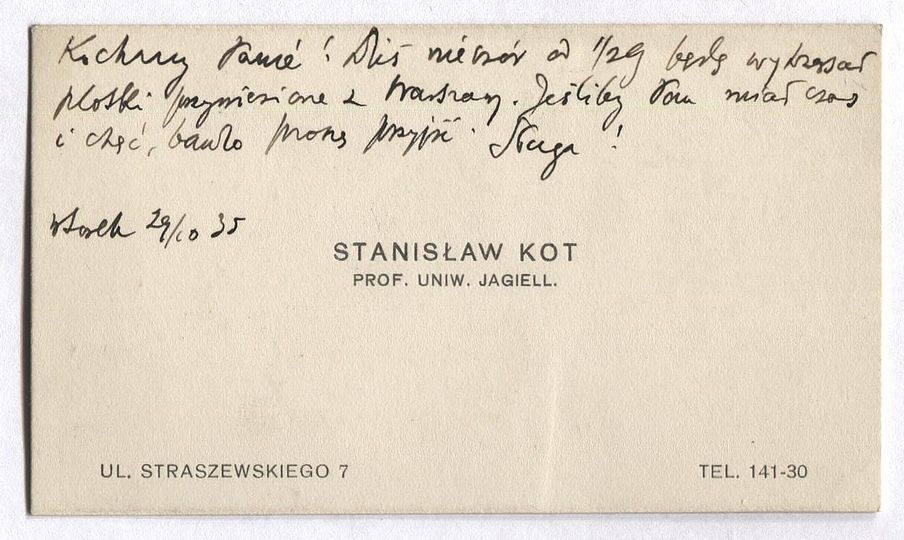 Kochany Panie! Dziś wieczór od 1/2 9 będę wytrząsał
plotki przywiezione z Warszawy. Jeśliby Pan miał czas
i chęć, bardzo proszę przyjść. Sługa!
wtorek 29/10 35
STANISŁAW KOT
PROF. UNIW. JAGIELL.
UL. STRASZEWSKIEGO 7
TEL. 141-30